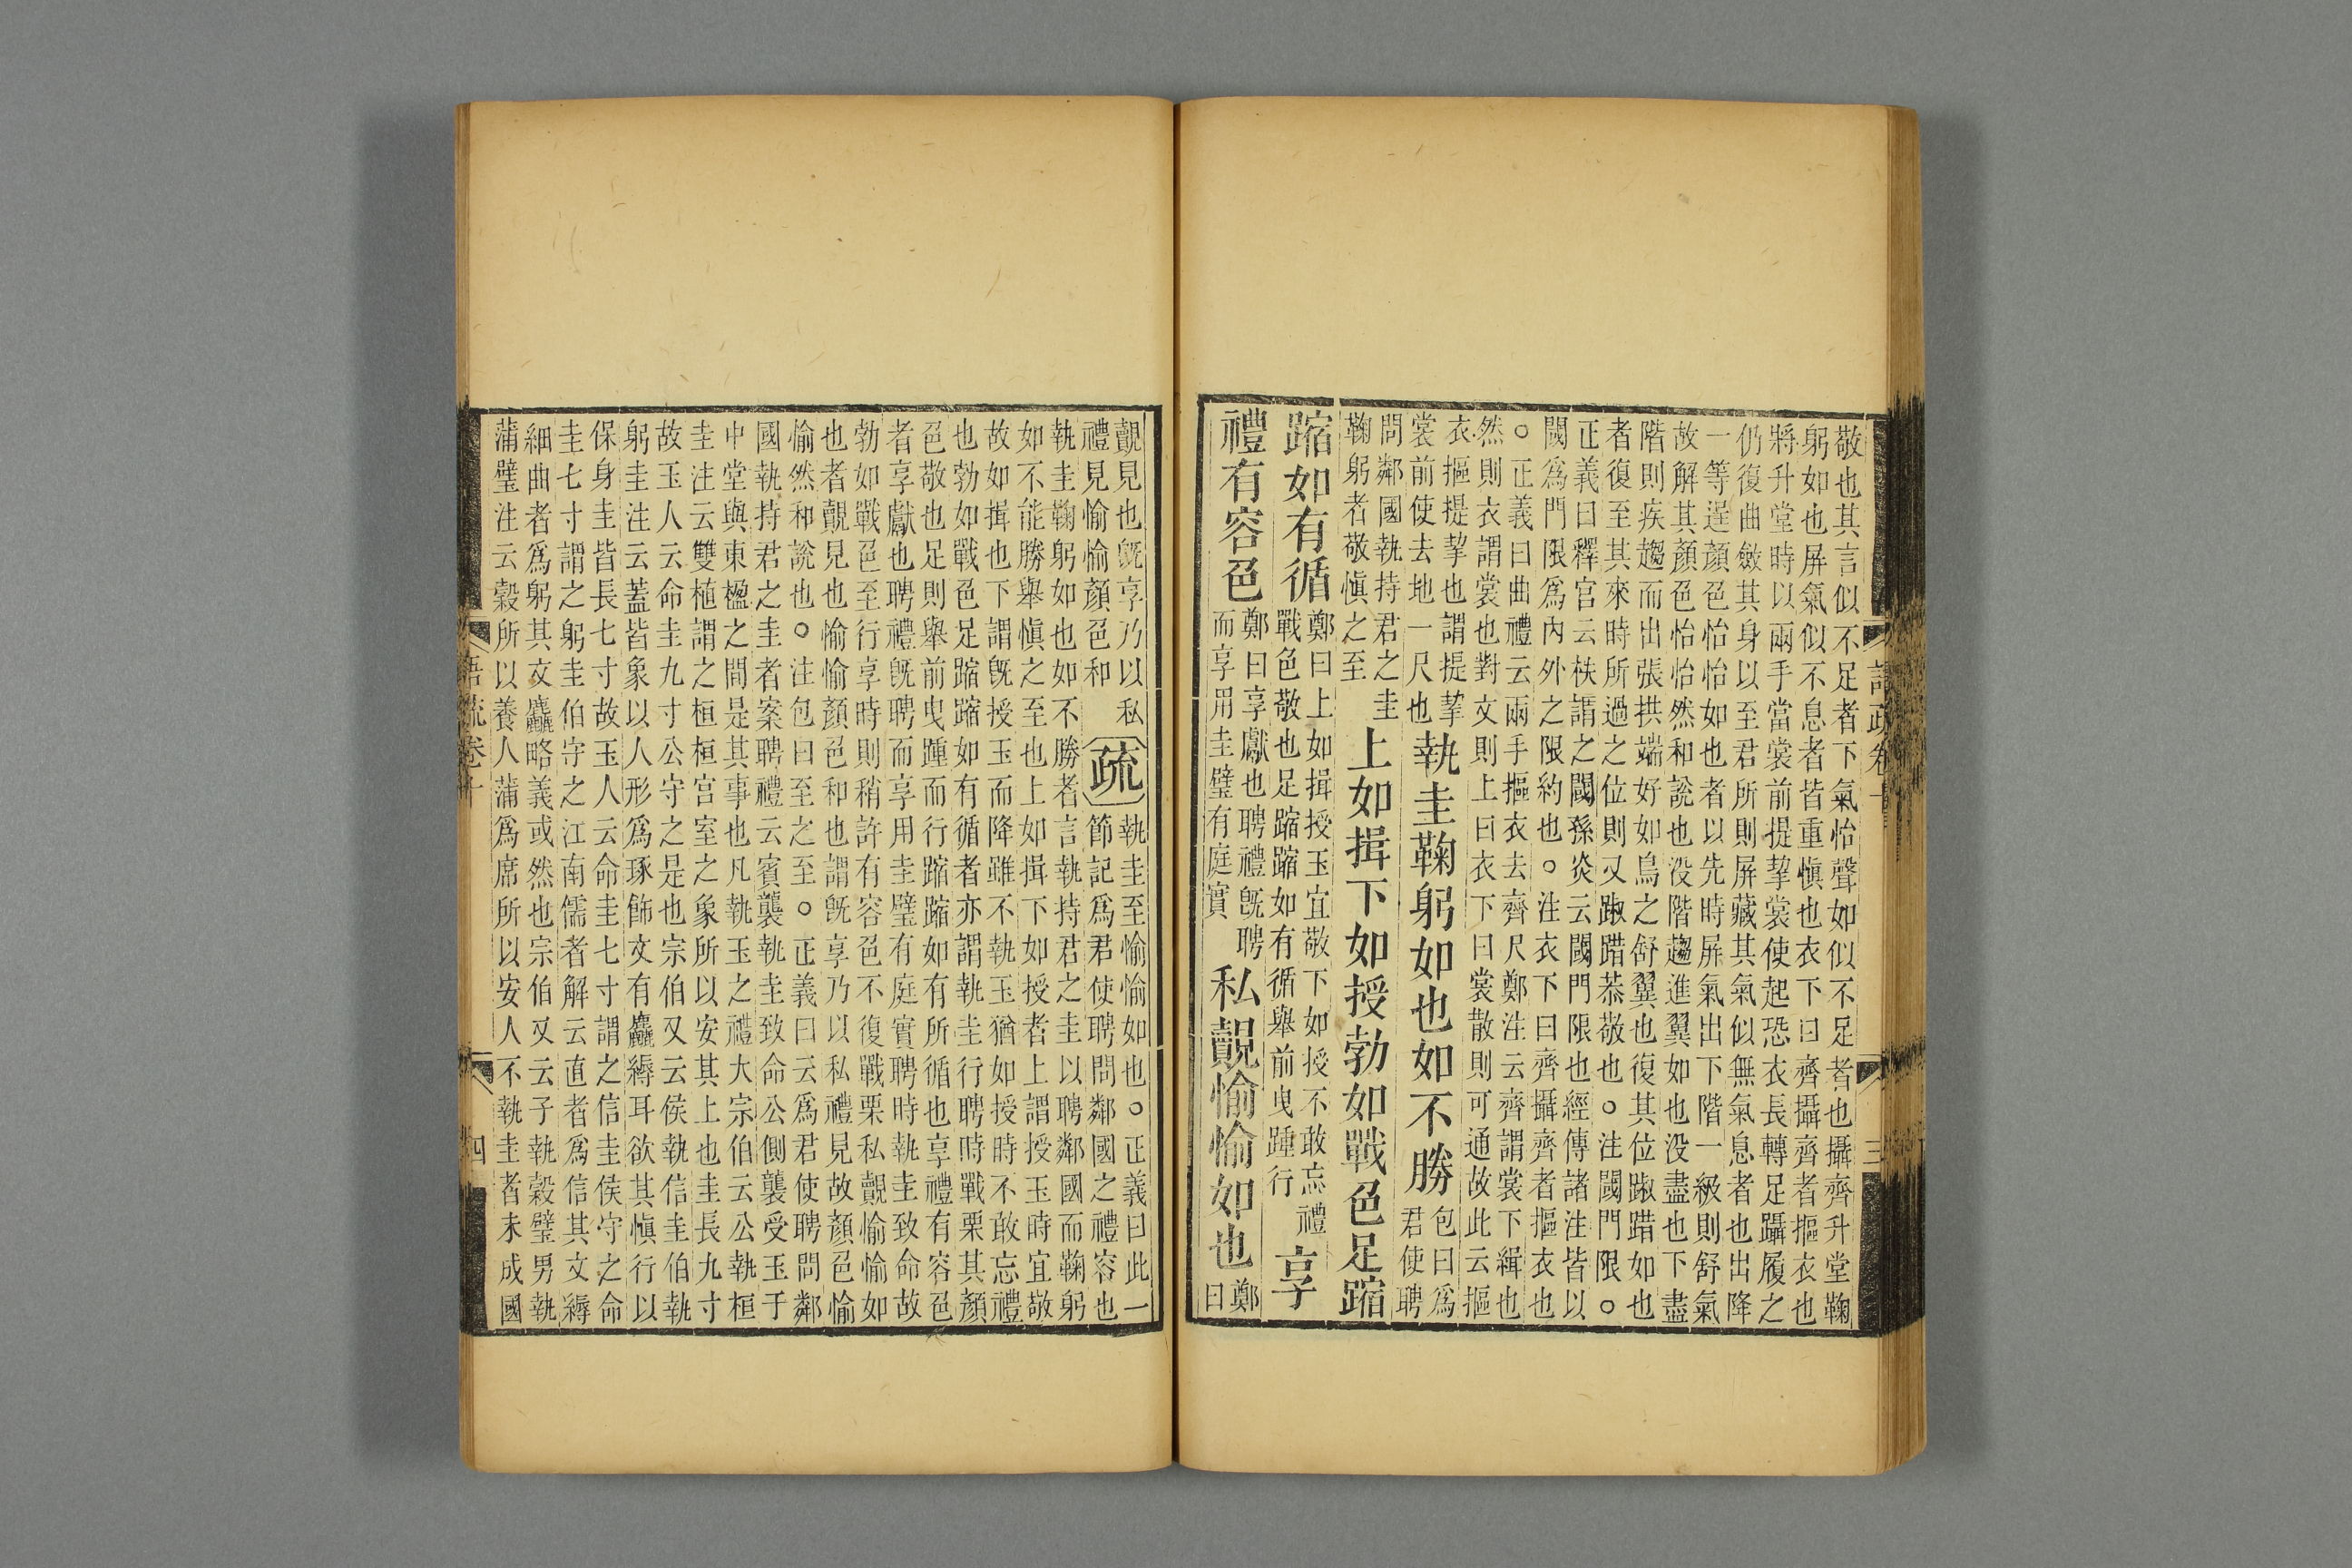 語疏卷十
三
敬也其言似不足者下氣怡聲如似不足者也攝齊升堂鞠
躬如也屏氣似不息者皆重愼也衣下曰齊攝齊者摳衣也
將升堂時以兩手當裳前提挈裳使起恐衣長轉足躡履之
仍復曲斂其身以至君所則屏藏其氣似無氣息者也出降
一等逞顏色怡怡如也者以先時屏氣出下階一級則舒氣
故解其顏色怡怡然和說也没階趨進翼如也没盡也下盡
階則疾趨而出張拱端好如鳥之舒翼也復其位踧踖如也
者復至其來時所過之位則又踧踖恭敬也○注閾門限○
正義曰釋宮云柣謂之閾孫炎云閾門限也經傳諸注皆以
閾爲門限爲內外之限約也○注衣下曰齊攝齊者摳衣也
○正義曰曲禮云兩手摳衣去齊尺鄭注云齊謂裳下緝也
然則衣謂裳也對文則上曰衣下曰裳散則可通故此云摳
衣摳提挈也謂提挈
裳前使去地一尺也
執圭鞠躬如也如不勝
包曰爲
君使聘
問鄰國執持君之圭
鞠躬者敬愼之至
上如揖下如授勃如戰色足蹜
蹜如有循
鄭曰上如揖授玉宜敬下如授不敢忘禮
戰色敬也足蹜蹜如有循舉前曳踵行
享
禮有容色
鄭曰享獻也聘禮旣聘
而享用圭璧有庭實
私覿愉愉如也
鄭
曰
覿見也旣享乃以私
禮見愉愉顏色和
疏
執圭至愉愉如也○正義曰此一
節記爲君使聘問鄰國之禮容也
執圭鞠躬如也如不勝者言執持君之圭以聘鄰國而鞠躬
如不能勝舉愼之至也上如揖下如授者上謂授玉時宜敬
故如揖也下謂旣授玉而降雖不執玉猶如授時不敢忘禮
也勃如戰色足蹜蹜如有循者亦謂執圭行聘時戰栗其顏
色敬也足則舉前曳踵而行蹜蹜如有所循也享禮有容色
者享獻也聘禮旣聘而享用圭璧有庭實聘時執圭致命故
勃如戰色至行享時則稍許有容色不復戰栗私覿愉愉如
也者覿見也愉愉顏色和也謂旣享乃以私禮見故顏色愉
愉然和說也○注包曰至之至○正義曰云爲君使聘問鄰
國執持君之圭者案聘禮云賓襲執圭致命公側襲受玉于
中堂與東楹之間是其事也凡執玉之禮大宗伯云公執桓
圭注云雙植謂之桓桓宮室之象所以安其上也圭長九寸
故玉人云命圭九寸公守之是也宗伯又云侯執信圭伯執
躬圭注云蓋皆象以人形爲琢飾文有麤縟耳欲其愼行以
保身圭皆長七寸故玉人云命圭七寸謂之信圭侯守之命
圭七寸謂之躬圭伯守之江南儒者解云直者爲信其文縟
細曲者爲躬其文麤略義或然也宗伯又云子執穀璧男執
蒲璧注云穀所以養人蒲爲席所以安人不執圭者未成國
語疏卷十
四